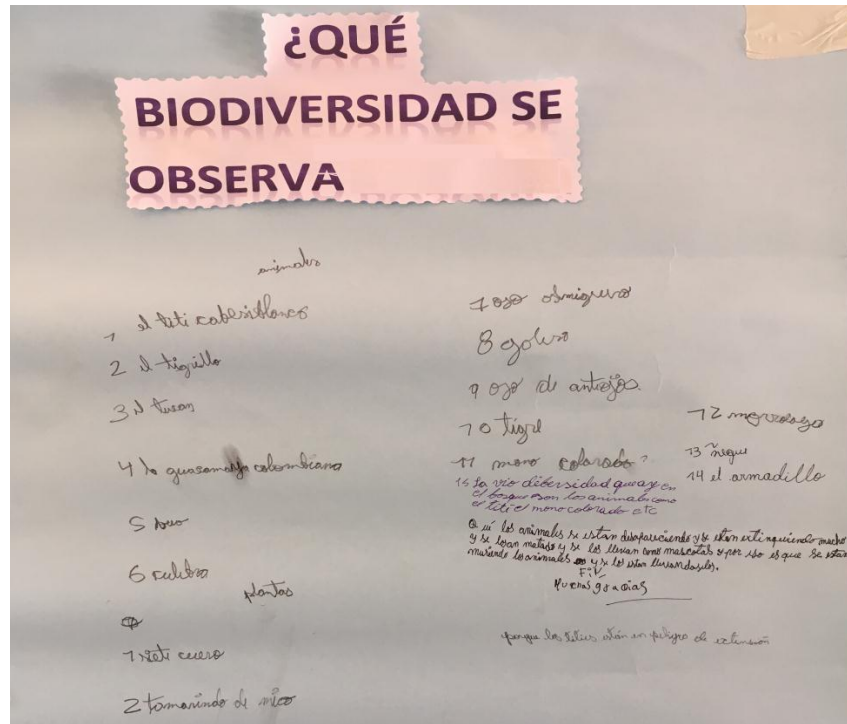 ¿QUÉ
BIODIVERSIDAD SE
OBSERVA
animales
1 el titi cabesiblanco
2 el tigrillo
3 el tucan
4 la guacamaya colombiana
5 buo
6 culebra
plantas
1 siete cuero
2 tamarindo de mico
7 oso ormiguero
8 golero
9 oso de antiojos.
10 tigre
11 mono colorado
12 morrocoyo
13 ñeque
14 el armadillo
15 La vio dibersidad que ay en
el bosque son los animales como
el titi el mono colorado etc
Qui los animales se estan desapareciendo y se estan extinguiendo mucho
y se losan matado y se los llevan como mascotas y por eso es que se estan
muriendo los animales y se los estan llevandoselos.
Fin
Muchas gracias
porque los tities están en peligro de extinsión